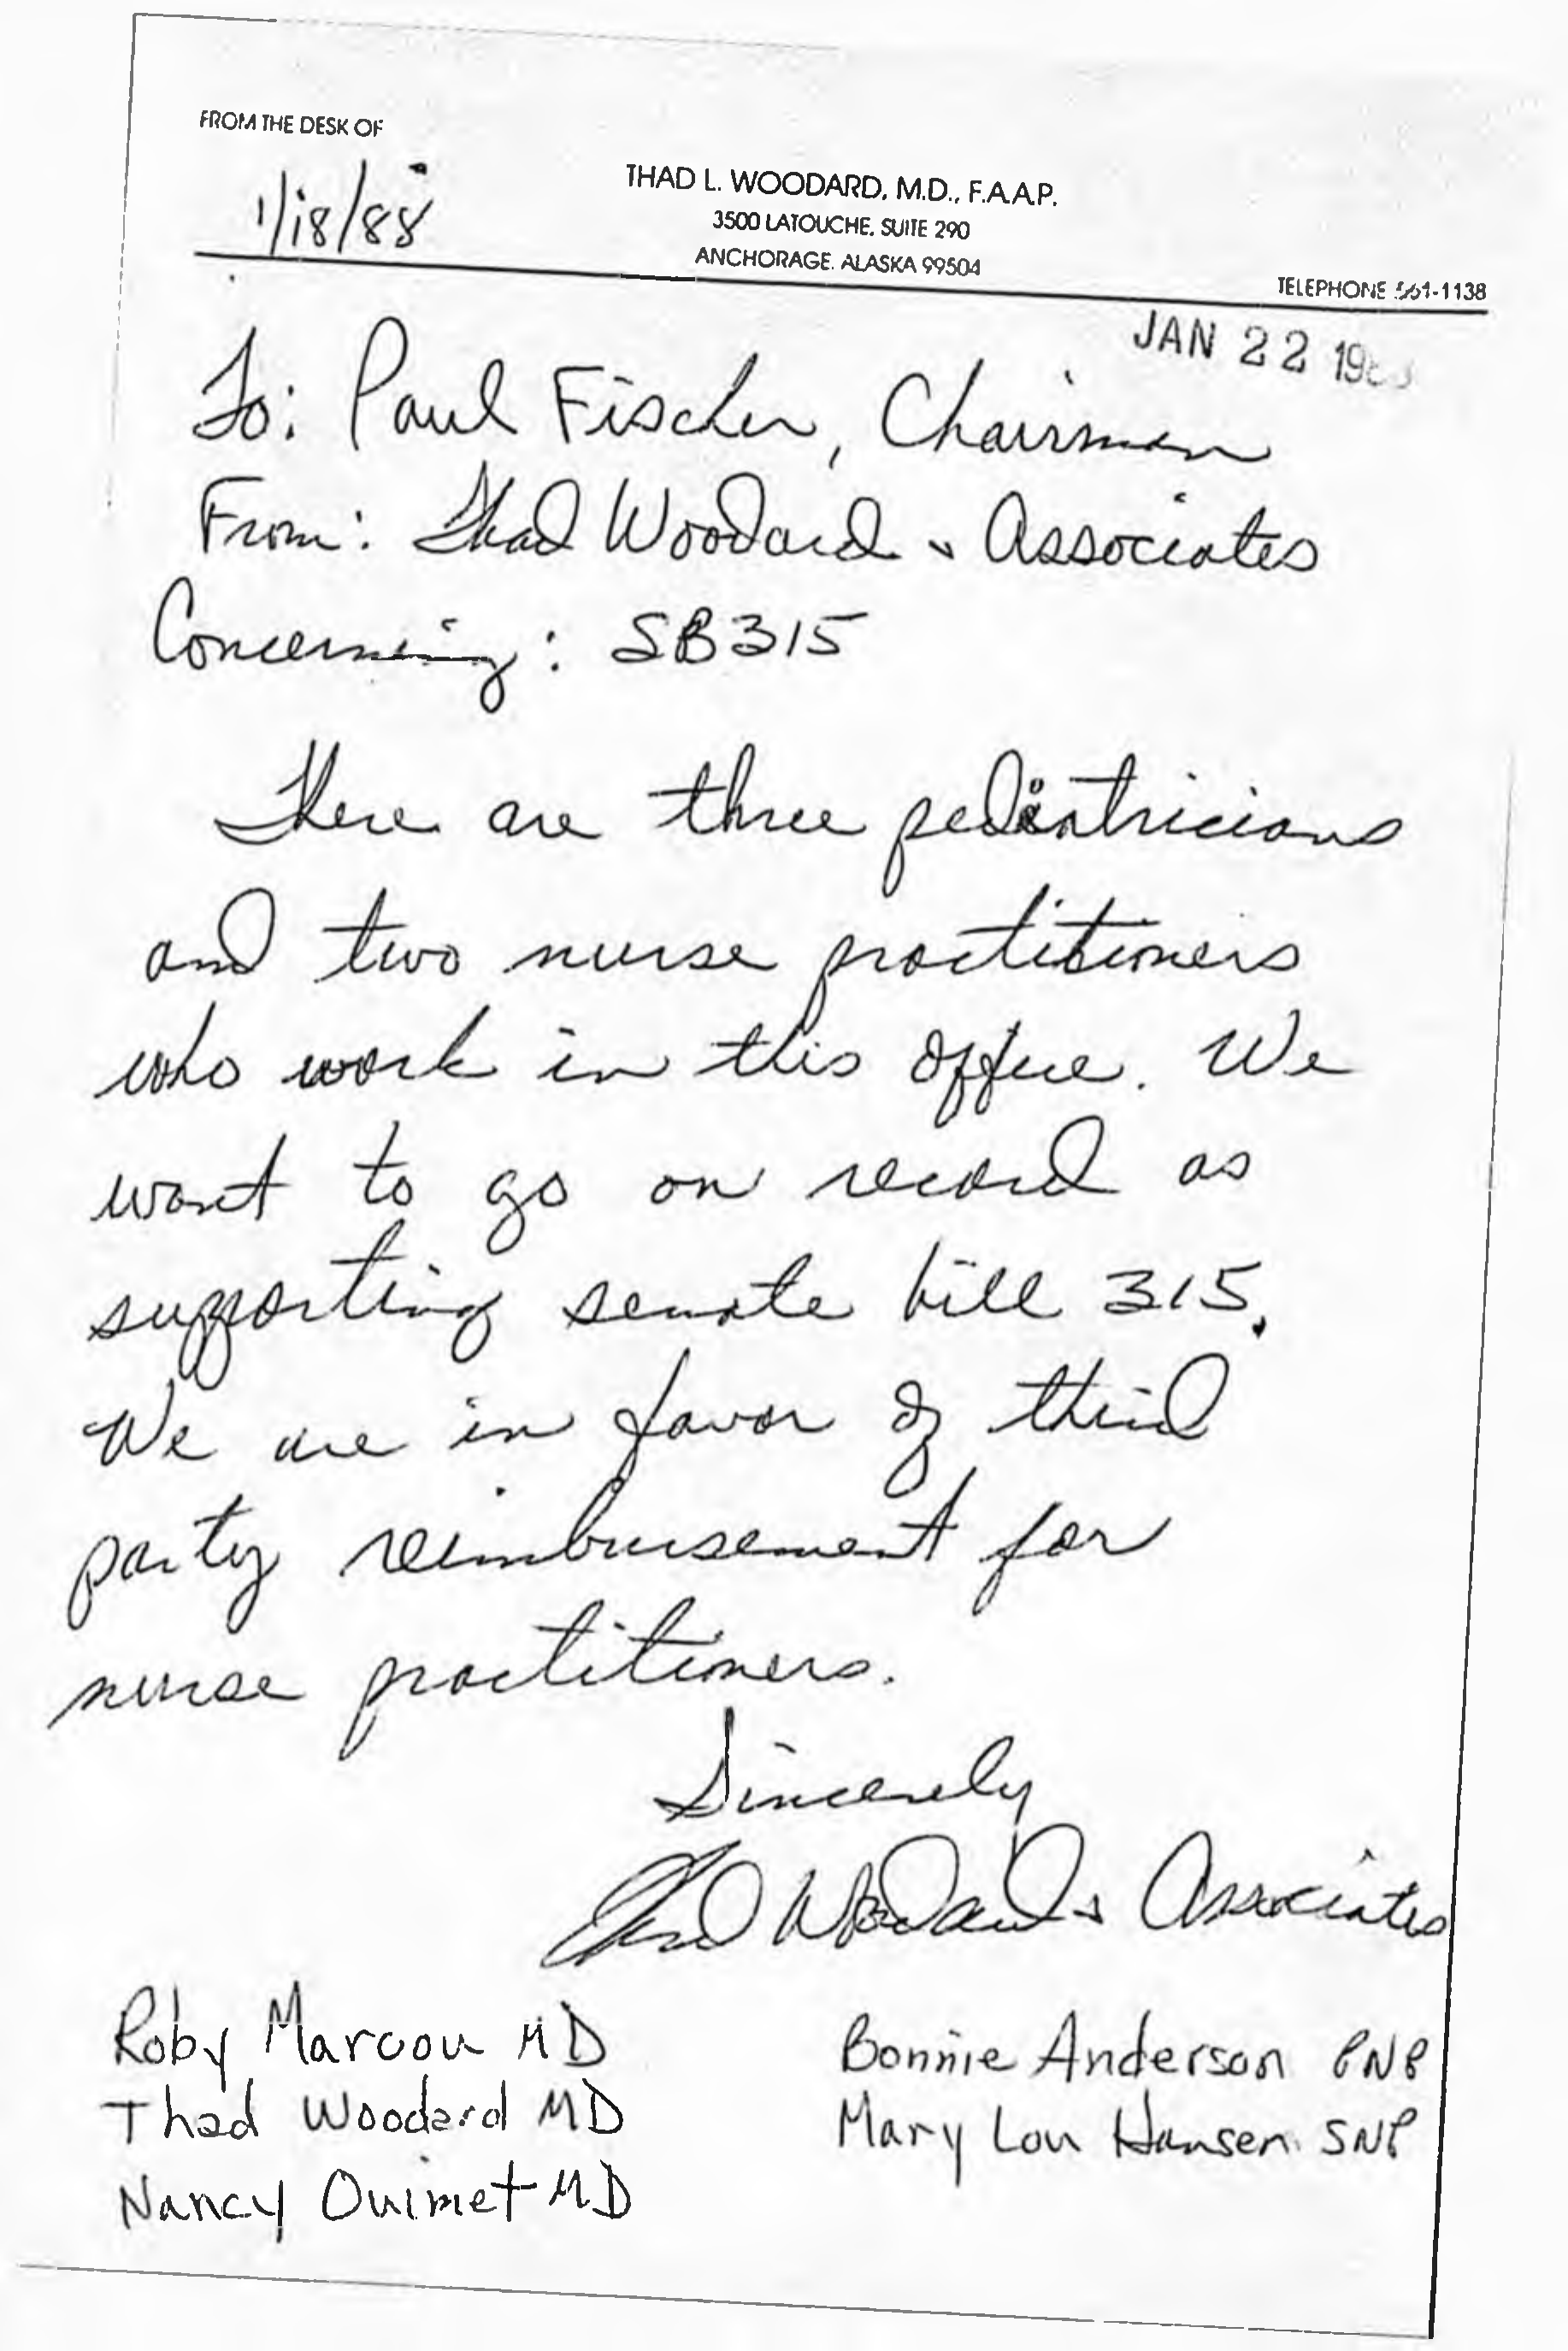 FROM THE DESK OF
1/18/88
THAD L. WOODARD, M.D., F.A.A.P.
3500 LATOUCHE, SUITE 290
ANCHORAGE, ALASKA 99504
TELEPHONE 561-1138
JAN 22 19
To: Paul Fischer, Chairman
From: Thad Woodard & Associates
Concerning: SB315
There are three pediatricians
and two nurse practitioners
who work in this office. We
want to go on record as
supporting senate bill 315.
We are in favor of third
party reimbursement for
nurse practitioners.
Sincerely
Thad Woodard & Associates
Roby Marcou MD
Thad Woodard MD
Nancy Ouimet MD
Bonnie Anderson PNP
Mary Lou Hansen SNP